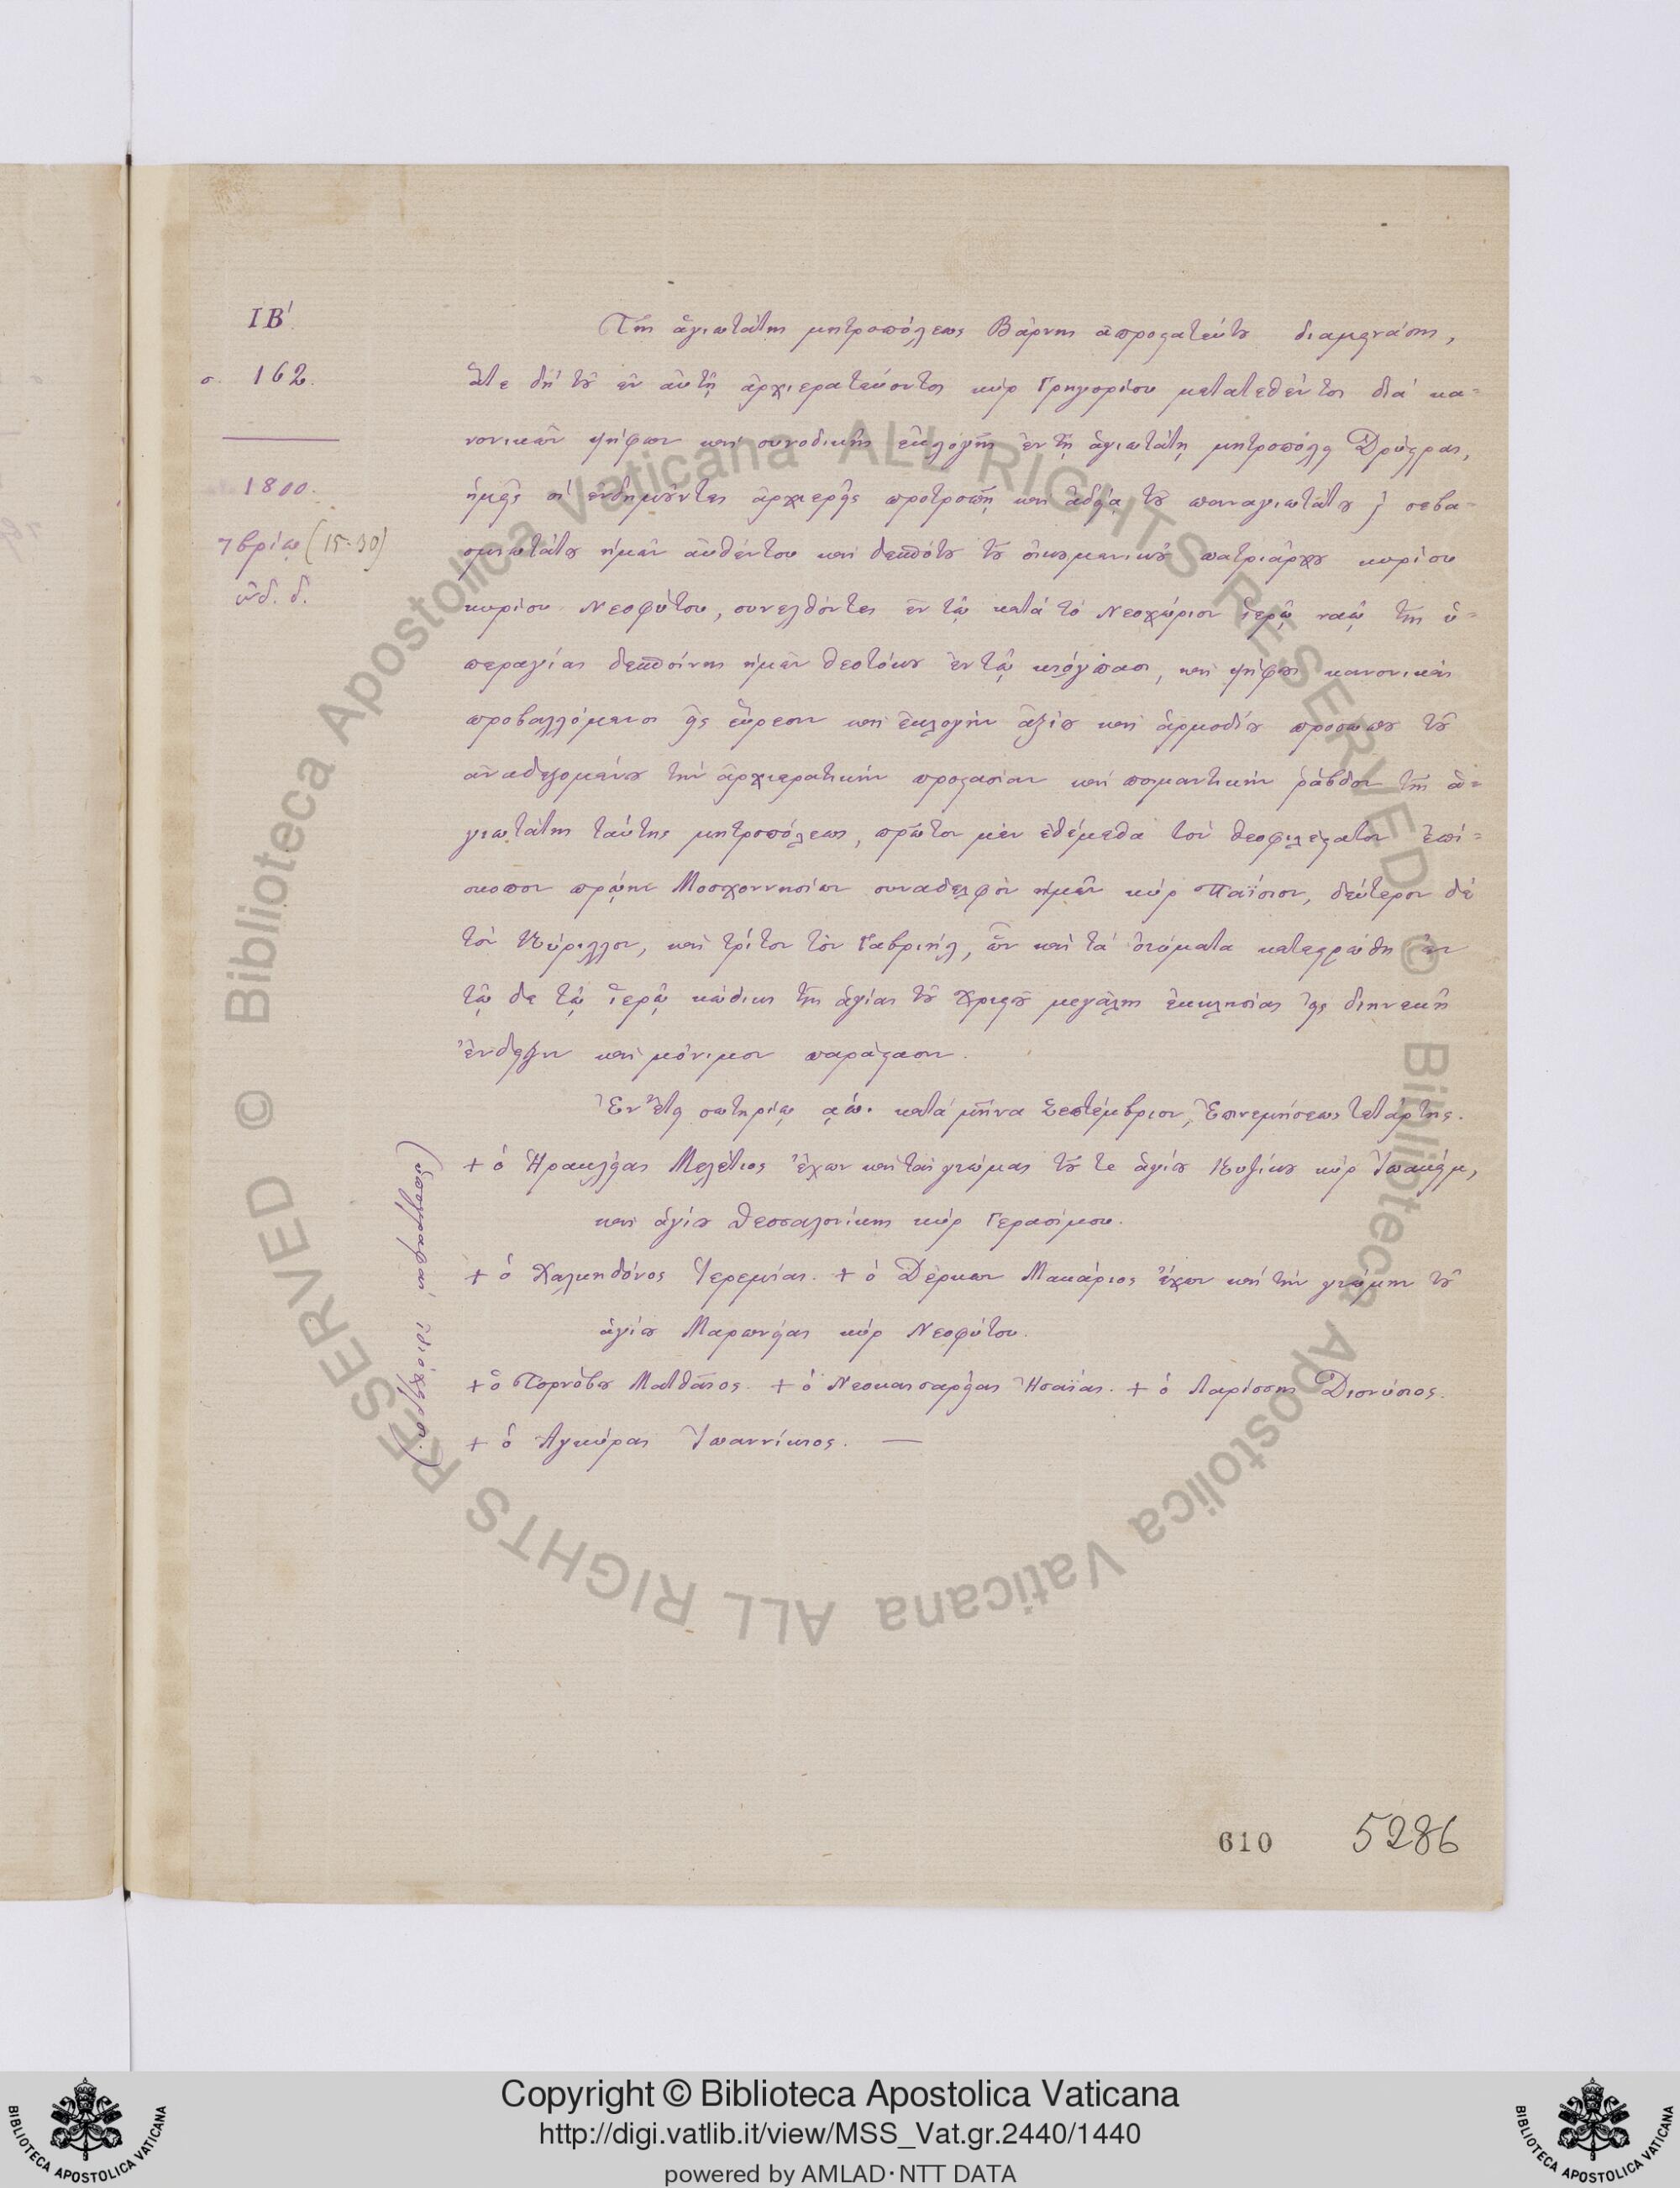 ΙΒ΄
σ. 162.
1800.
7βρίῳ (15-30)
ἰνδ. δ.
Τῆς ἁγιωτάτης μητροπόλεως Βάρνης ἀπροστατεύτου διαμεινάσης,
ἅτε δὴ τοῦ ἐν αὐτῇ ἀρχιερατεύοντος κὺρ Γρηγορίου μετατεθέντος διὰ κα=
νονικῶν ψήφων καὶ συνοδικῆς ἐκλογῆς ἐν τῇ ἁγιωτάτῃ μητροπόλει Δρύστρας,
ἡμεῖς οἱ ἐνδημοῦντες ἀρχιερεῖς προτροπῇ καὶ ἀδείᾳ τοῦ παναγιωτάτου καὶ σεβα=
σμιωτάτου ἡμῶν αὐθέντου καὶ δεσπότου τοῦ οἰκουμενικοῦ πατριάρχου κυρίου
κυρίου Νεοφύτου, συνελθόντες ἐν τῷ κατὰ τὸ Νεοχώριον ἱερῷ ναῷ τῆς ὑ=
περαγίας δεσποίνης ἡμῶν θεοτόκου ἐν τῷ κιόγπασι, καὶ ψήφους κανονικὰς
προβαλλόμενοι εἰς εὕρεσιν καὶ ἐκλογὴν ἀξίου καὶ ἁρμοδίου προσώπου τοῦ
ἀναδεξομένου τὴν ἀρχιερατικὴν προστασίαν καὶ ποιμαντικὴν ῥάβδον τῆς ἁ=
γιωτάτης ταύτης μητροπόλεως, πρῶτον μὲν ἐθέμεθα τὸν θεοφιλέστατον ἐπί=
σκοπον πρώην Μοσχοννησίων συναδελφὸν ἡμῶν κὺρ Παΐσιον, δεύτερον δὲ
τὸν Κύριλλον, καὶ τρίτον τὸν Γαβριήλ, ὧν καὶ τὰ ὀνόματα κατεστρώθη ἐν
τῷ δε τῷ ἱερῷ κώδικι τῆς ἁγίας τοῦ Χριστοῦ μεγάλης ἐκκλησίας εἰς διηνεκῆ
ἔνδειξιν καὶ μόνιμον παράστασιν.
Ἐν ἔτει σωτηρίῳ ͵αω. κατὰ μῆνα Σεπτέμβριον, Ἐπινεμήσεως τετάρτης.
+ ὁ Ἡρακλείας Μελέτιος ἔχων καὶ τὰς γνώμας τοῦ τε ἁγίου Κυζίκου κὺρ Ἰωακείμ,
καὶ ἁγίου Θεσσαλονίκης κὺρ Γερασίμου.
+ ὁ Χαλκηδόνος Ἱερεμίας. + ὁ Δέρκων Μακάριος ἔχων καὶ τὴν γνώμην τοῦ
ἁγίου Μαρωνείας κὺρ Νεοφύτου.
+ ὁ Τορνόβου Ματθαῖος. + ὁ Νεοκαισαρείας Ἡσαΐας. + ὁ Λαρίσσης Διονύσιος.
+ ὁ Ἀγκύρας Ἰωαννίκιος. —
(ὑπογραφαὶ, ἰδιόχειροι.)
610 5286
© Biblioteca Apostolica Vaticana ALL RIGHTS RESERVED © Biblioteca Apostolica Vaticana ALL RIGHTS RESERVED
Copyright © Biblioteca Apostolica Vaticana
http://digi.vatlib.it/view/MSS_Vat.gr.2440/1440
powered by AMLAD・NTT DATA
BIBLIOTECA APOSTOLICA VATICANA
BIBLIOTECA APOSTOLICA VATICANA